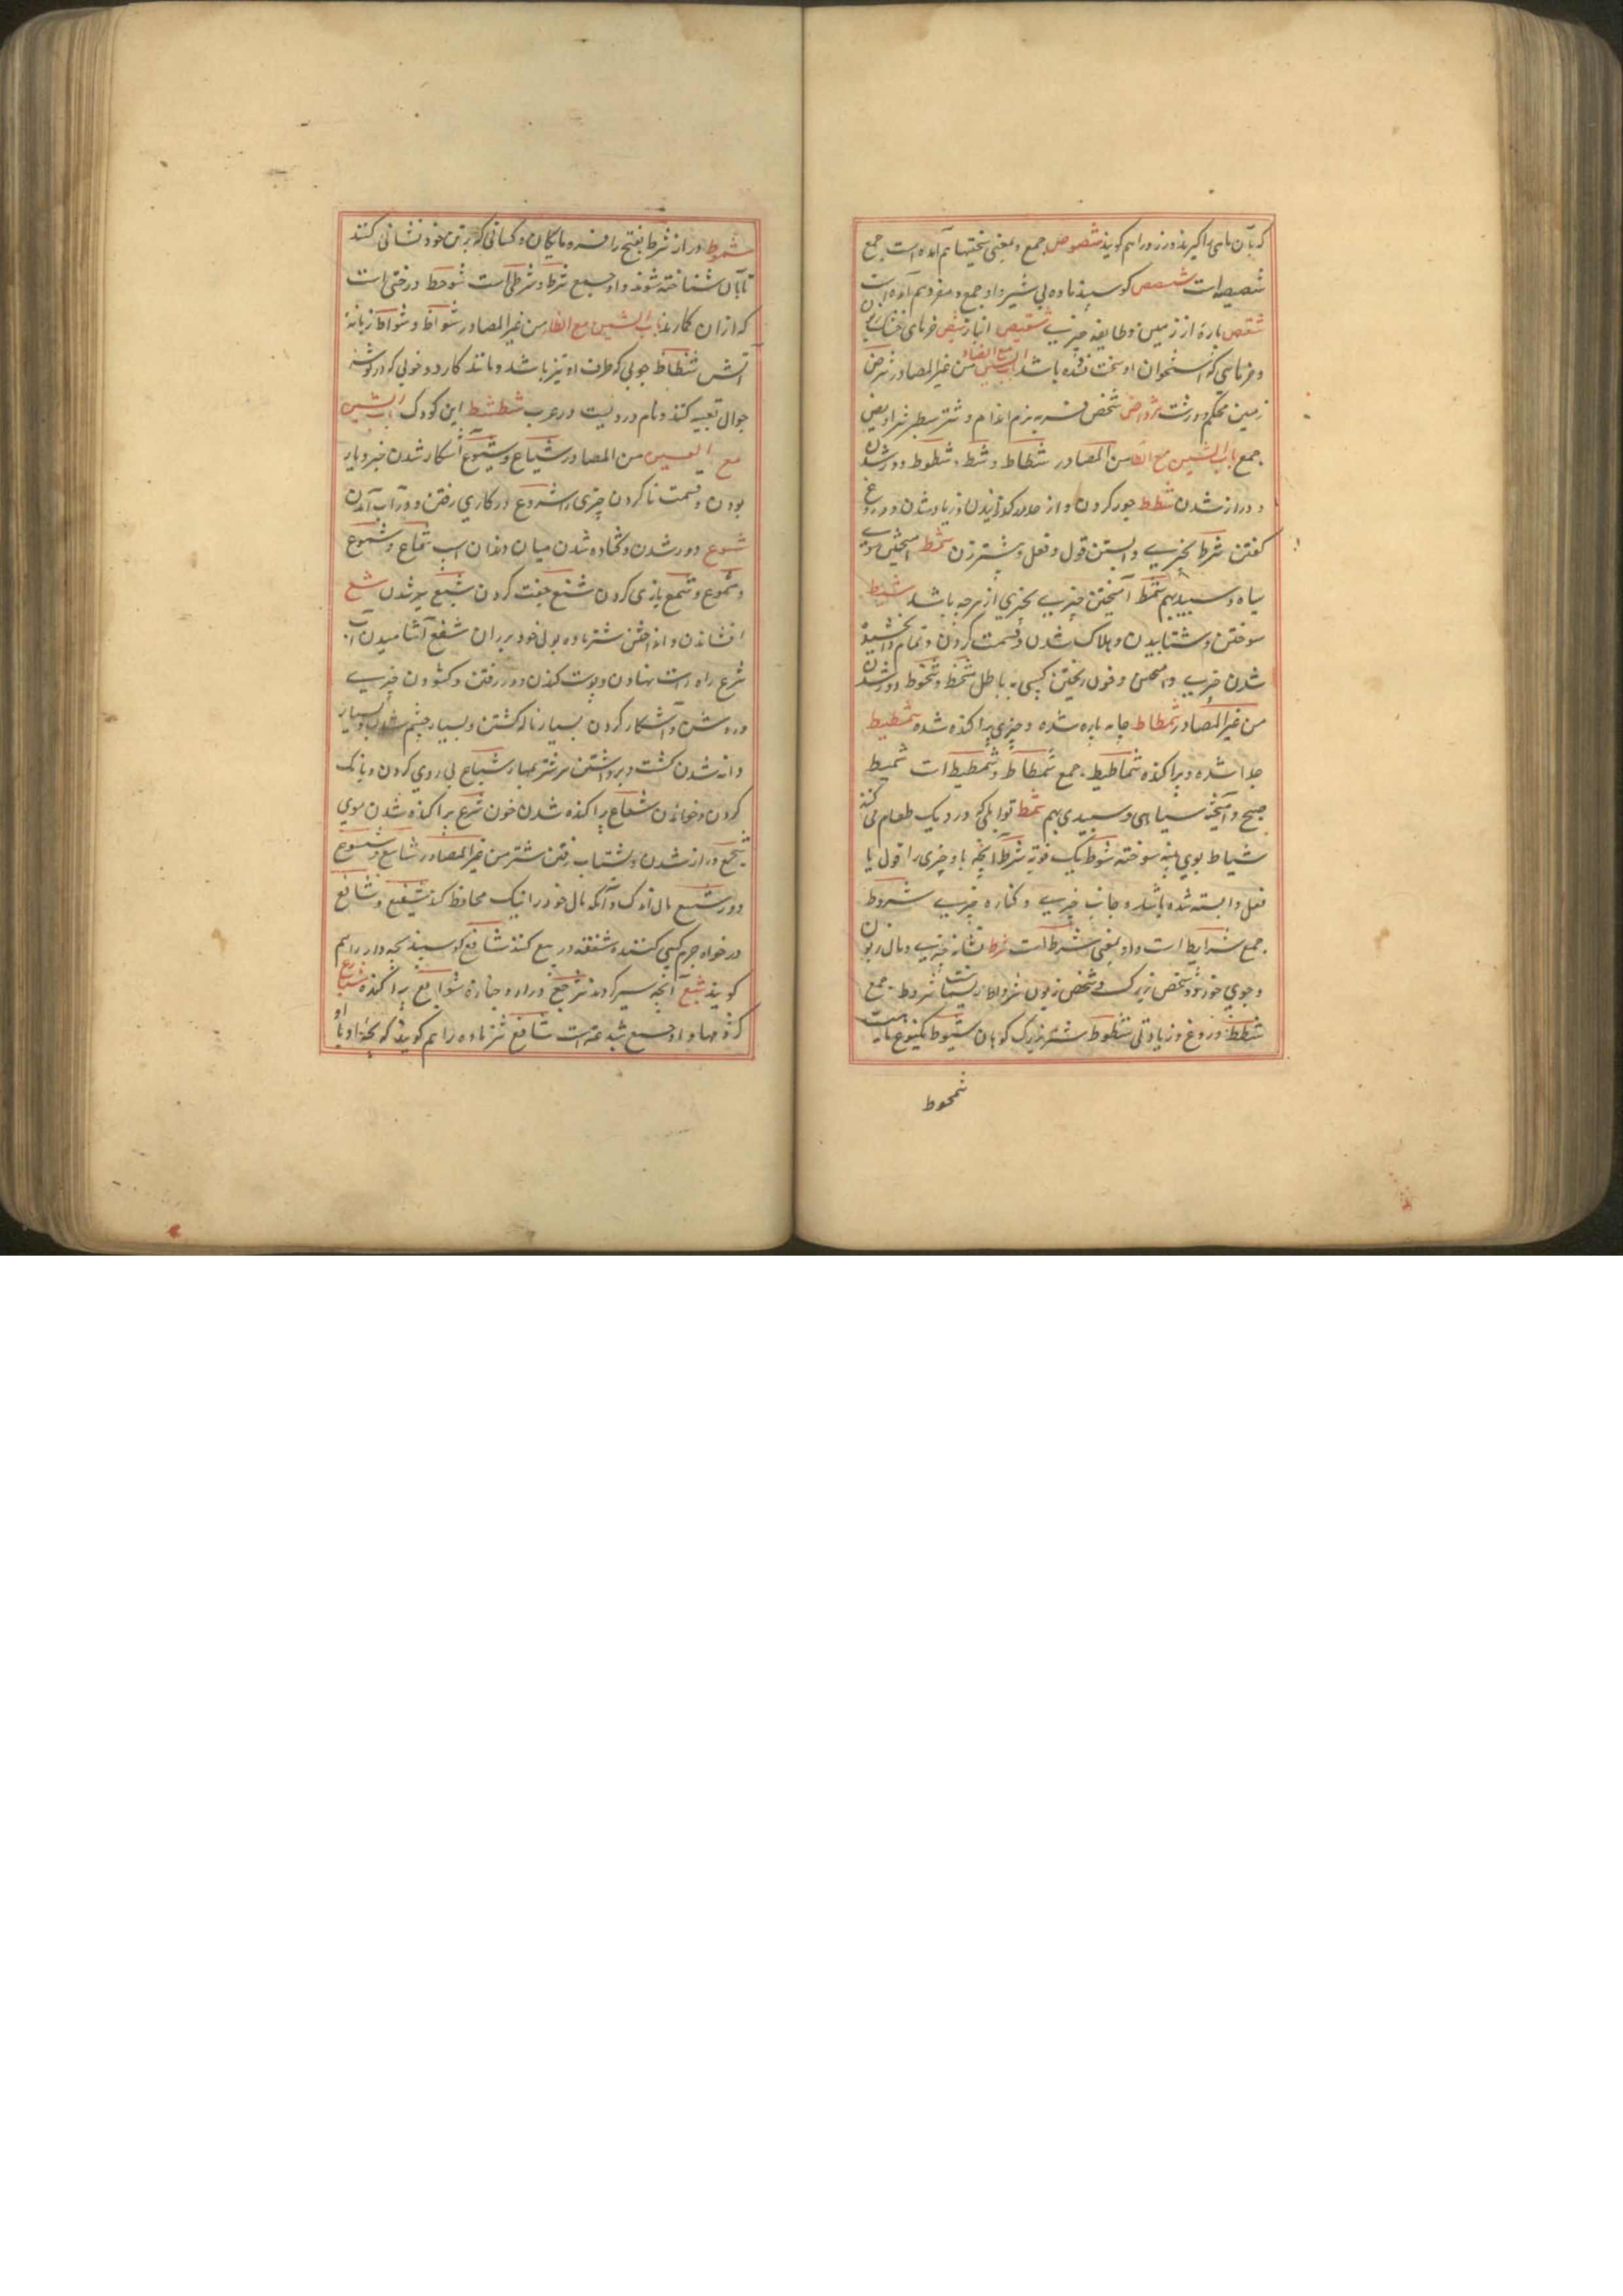 که بآن ماهی را گیرند و زنرا هم گویند شصوص جمع و بمعنی سختیها هم آمده است جمع
شصیصه است شصص گوسپند ماده بی شیر و او جمع و مفرد هم آمده است
شقص پارهٔ از زمین و طایفهٔ چیزی شقیص انباز شیص خرمای خشک
و خرمائی که استخوان او سخت نشده باشد باب الشین مع الضاد من غیر المصادر شرض
زمین محکم و درشت شرواض شخص فربه نرم اندام و شتر سطبر شراویض
جمع باب الشین مع الطا من المصادر شطاط و شط و شطوط دور شدن
و دراز شدن شطط جور کردن و از حد در گذرانیدن و زیاد شدن و دروغ
گفتن شرط بچیزی وابستن قول و فعل و نیشتر زدن شمط آمیختن موی
سیاه و سپید بهم شمط آمیختن چیزی بچیزی از هرچه باشد شیط
سوختن و شتابیدن و هلاک شدن و قسمت کردن و تمام بخشیده
شدن چیزی و آمیختن و خون ریختن کسی به باطل شحط و شحوط دور شدن
من غیر المصادر شمطاط جامه پاره شده و چیزی پراکنده شده شمطیط
جدا شده و پراکنده شماطیط جمع شمطاط و شمطیط است شمیط
صبح و آمیخته سیاهی و سپیدی بهم شمط توابلی که در دیک طعام می کنند
شیاط بوی پنبه سوخته شوط یک نوبه شرط آنچه باو چیزی را قول یا
فعل وابسته شده باشد و جانب چیزی و کناره چیزی شروط
جمع شرایط است و او بمعنی شرط است شرط نشانه چیزی و مال زبون
و جوی خورد و شخص بزرگ و شخص زبون شرواط شروط جمع
شطط دروغ و زیادتی شطوط شتر بزرگ کوهان شیوط
شمحوط
شمحوط دراز شرط بفتح را فرومایگان و کسانی که بر تن خود نشانی کنند
تا بآن شناخته شوند و او جمع شرط و شرطی است شوحط درختی است
که از آن کمان کنند باب الشین مع الظا من غیر المصادر شواظ و شواظ زبانهٔ
آتش شظاظ چوبی که طرف او تیز باشد و مانند کارد و چوبی که در گوشه
جوال تعبیه کنند و نام دزدیست در عرب شظشظ این کودک باب الشین
مع العین من المصادر شیاع و شیوع آشکار شدن خبر و یار
بودن و قسمت نا کردن چیزی را شروع در کاری رفتن و در آب آمدن
شسوع دور شدن و گشاده شدن میان دندان اسب شماع و شموع
و شموع و شمع بازی کردن شفع جفت کردن شبع سیر شدن شع
افشاندن و انداختن شتر ماده بول خود بر ران شفع آشامیدن آب
شرع راه راست نهادن و پوست کندن و در رفتن و گشودن چیزی
و روشن و آشکار کردن بسیار ناله گشتن و بسیار چشم شدن و بسیار
دانه شدن کشت و برداشتن سر شتر بمهار شیاع پی روی کردن و بانک
کردن و خواندن شعاع پراکنده شدن خون شوع پراکنده شدن موی
شجع دراز شدن و شتاب رفتن شتر من غیر المصادر شاسع و شسوع
دور شسع مال اندک و آنکه مال خود را نیک محافظ کند شفیع و شافع
درخواه جرم کسی کننده شفعه در بیع کننده شافع گوسپند بچه دار را هم
گویند شبع آنچه سیر گرداند شرجع دراز و جنازه شوایع پراکنده شباع
گروهها و او جمع شیعه است شافع شتر ماده را هم گویند که بچه او با او